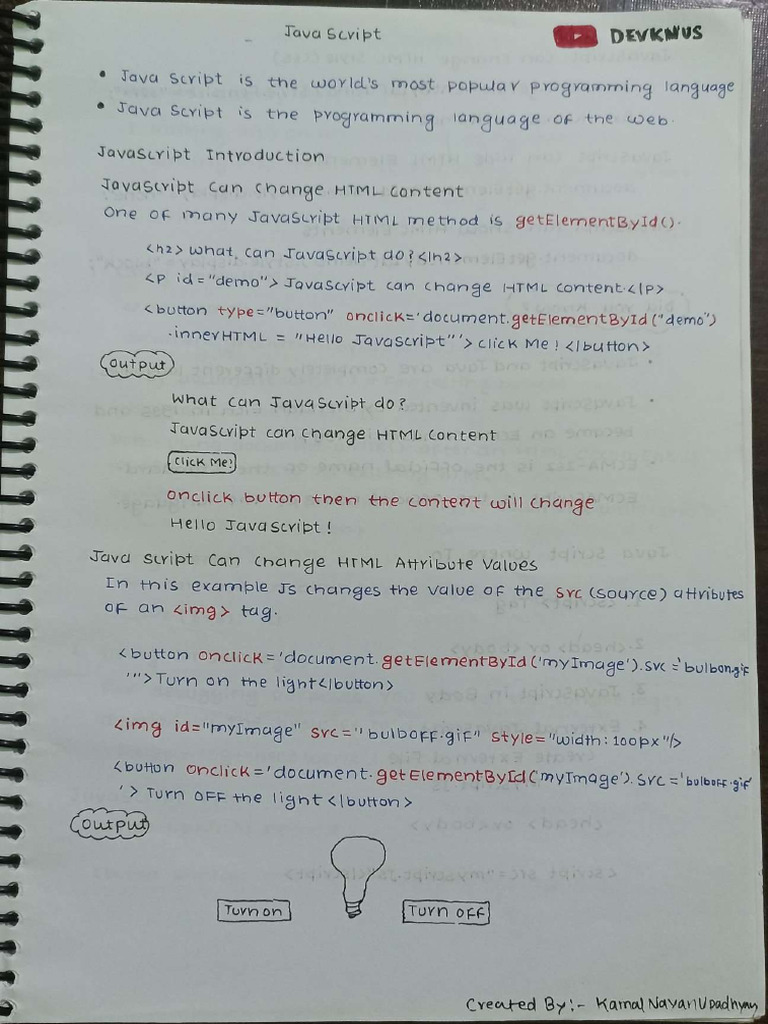 Java Script
DEVKNUS
• Java Script is the world's most popular programming language
• Java Script is the programming language of the web.
JavaScript Introduction
JavaScript Can Change HTML Content
One of many JavaScript HTML method is getElementById().
<h2> What can JavaScript do? </h2>
<p id="demo"> JavaScript can change HTML content.</p>
<button type="button" onclick='document.getElementById("demo")
.innerHTML = "Hello JavaScript"'> Click Me! </button>
Output
What can JavaScript do?
JavaScript can change HTML Content
Click Me!
onclick button then the content will change
Hello JavaScript!
Java Script Can Change HTML Attribute Values
In this example JS changes the value of the src (source) attributes
of an <img> tag.
<button onclick='document.getElementById('myImage').src ='bulbon.gif
'"> Turn on the light</button>
<img id="myImage" src="bulboff.gif" style="width:100px"/>
<button onclick='document.getElementById(myImage').src ='bulboff.gif'
'> Turn OFF the light </button>
Output
Turn on
Turn OFF
Created By:- Kamal Nayan Upadhyay